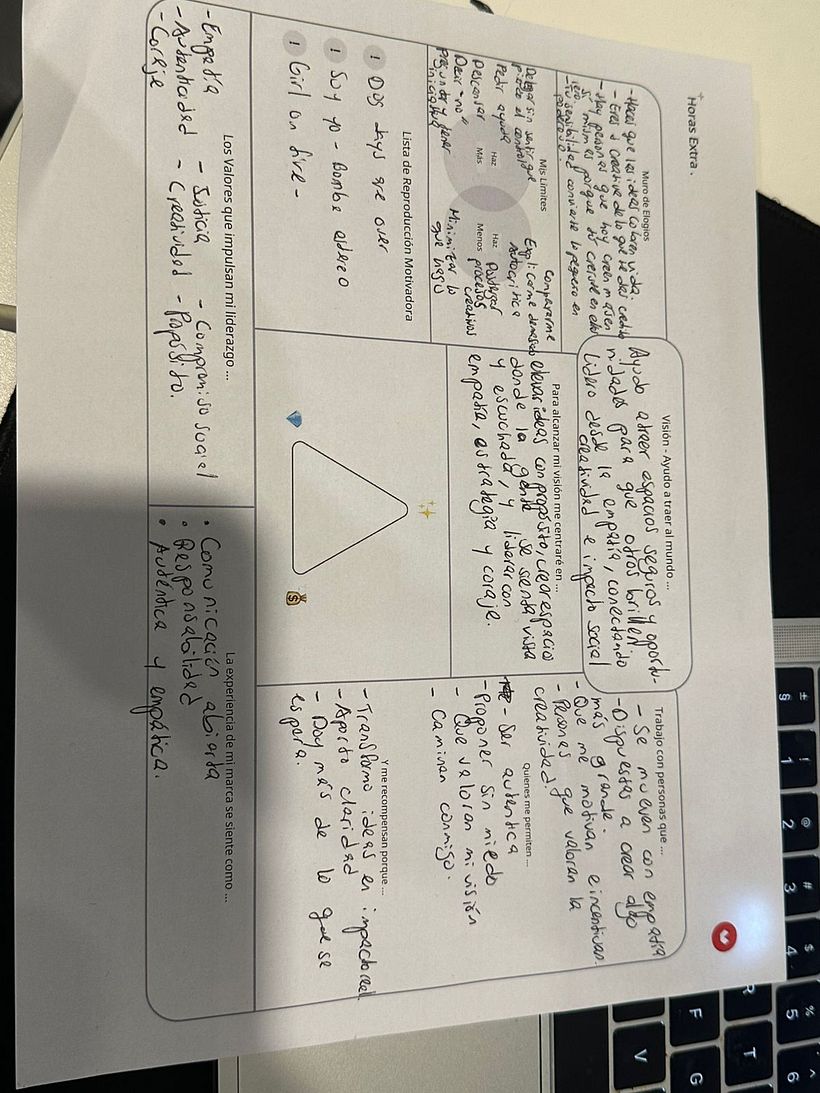 +Horas Extra.
Muro de Elogios
-Haces que las ideas cobren vida.
- Eres + creativa de lo que te das credito
- Hay personas que hoy creen más en
sí mismas porque tú creíste en ellas
-Tu sensibilidad convierte lo pequeño en
poderoso.
Mis Límites
Delegar sin sentir que
pierdo el control
Pedir ayuda
Descansar
Decir "no"
preguntar y tener
iniciativa
Haz
Más
Compararme
Explicarme demasiado
autocrítica
Haz
Menos
Postergar
procesos
creativos
Minimizar lo
que hago
Lista de Reproducción Motivadora
! Dog days are over
! Soy yo - Bomba estéreo
! Girl on fire -
Visión - Ayudo a traer al mundo ...
Ayudo a traer espacios seguros y oportu-
nidades para que otros brillen.
Lidero desde la empatía, conectando
creatividad e impacto social
Para alcanzar mi visión me centraré en ...
elevar ideas con propósito, crear espacios
donde la gente se sienta vista
y escuchada, y liderar con
empatía, estrategia y coraje.
Trabajo con personas que ...
- Se mueven con empatía
- Dispuestas a crear algo
más grande.
- Que me motivan e incentivan.
- Personas que valoran la
creatividad.
Quienes me permiten ...
- Ser autentica
- Proponer sin miedo
- Que valoran mi visión
- Caminan conmigo.
Y me recompensan porque ...
- Transformo ideas en impacto real
- Aporto claridad
- Doy más de lo que se
espera.
Los Valores que impulsan mi liderazgo ...
- Empatía
- Autenticidad
- Coraje
- Justicia
- Creatividad
- Compromiso social
- Propósito.
La experiencia de mi marca se siente como ...
• Comunicación abierta
• Responsabilidad
• Auténtica y empática.
±
§
!
1
@
2
#
3
$
4
%
5
^
6
R
T
F
G
V